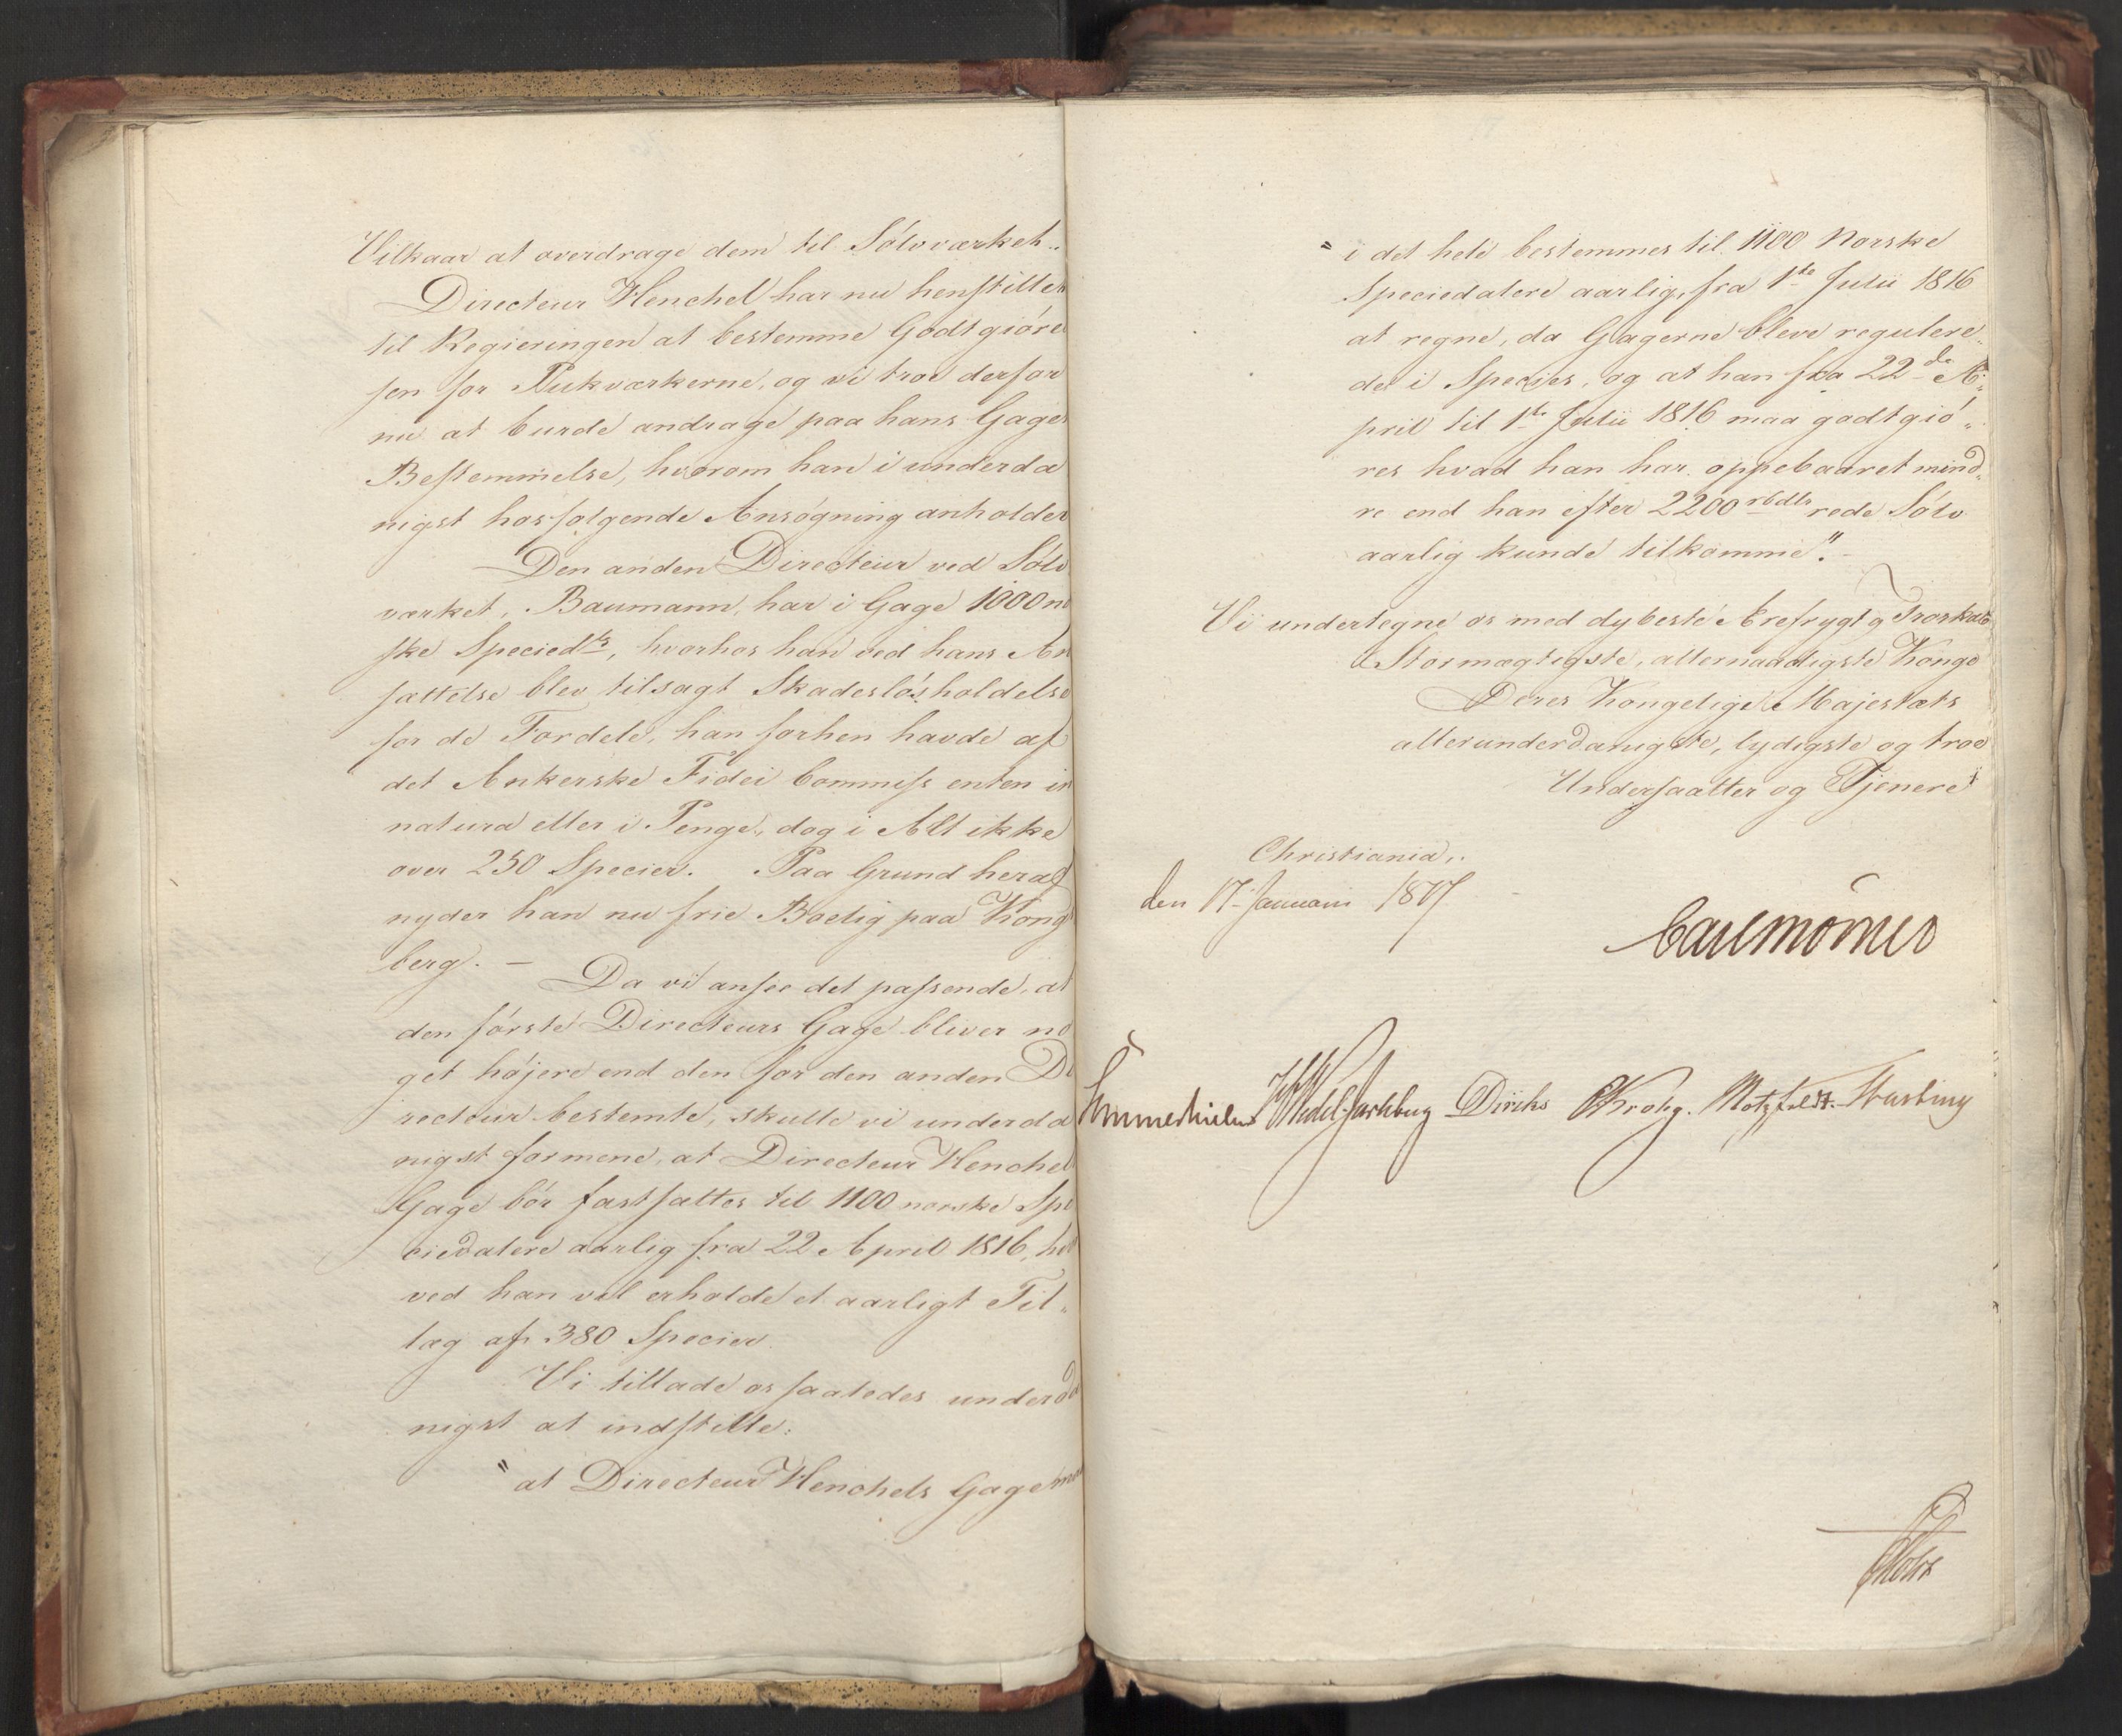 Vilkaar at overdrage dem til Sølvværket.
Directeur Henchel har nu henstillet
til Regieringen at bestemme Godtgiørel
sen for Pukværkerne, og vi troe derfor
nu at burde andrage paa hans Gages
Bestemmelse, hvorom han i underda
nigst hosfølgende Ansøgning anholder
Den anden Directeur ved Sølv
værket, Baumann, har i Gage 1000 no
ske Specied., hvorhos han ved hans An
sættelse blev tilsagt Skadesløsholdelse
for de Fordele, han forhen havde af
det Ankerske Fidei Commiss enten in
natura eller i Penge, dog i Alt ikke
over 250 Species. Paa Grund heraf
nyder han nu frie Boelig paa Kong
berg. – Da vi ansee det passende, at
den første Directeurs Gage bliver no
get højere end den for den anden Di
recteur bestemte, skulle vi underda
nigst formene, at Directeur Henchel
Gage bør fastsættes til 1100 norske Spe
ciedalere aarlig fra 22 April 1816, hvor
ved han vil erholde et aarligt Til„
læg af 380 Species
Vi tillade os saaledes underda
nigst at indstille:
"at Directeur Henchels Gage
" i det hele bestemmes til 1100 Norske
Speciedalere aarlig, fra 1ste Julii 1816
at regne, da Gagerne bleve regulere„
de i Species, og at han fra 22de A„
pril til 1ste Julii 1816 maa godtgiø„
res hvad han har oppebaaret mind„
re end han efter 2200 rbdlr rede Sølv
aarlig kunde tilkomme". –
Vi undertegne os med dybeste Ærefrygt og Troskab
Stormægtigste, allernaadigste Konge
Deres Kongelige Majestæts
allerunderdanigste, lydigste og troe
Undersaatter og Tjenere
Christiania,
den 17 Januari 1817
Carl Mörner
Sommerhielm Wedel Jarlsberg Diriks CKrohg. Motzfeldt. Hasting
Holst